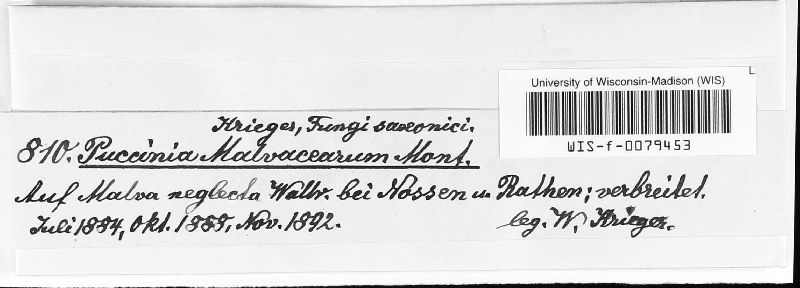 L
University of Wisconsin-Madison (WIS)
WIS-f-0079453
Krieger, Fungi saxonici.
810. Puccinia Malvacearum Mont.
Auf Malva neglecta Wallr. bei Nossen u. Rathen; verbreitet.
Juli 1884, Okt. 1885, Nov. 1892.
leg. W. Krieger.